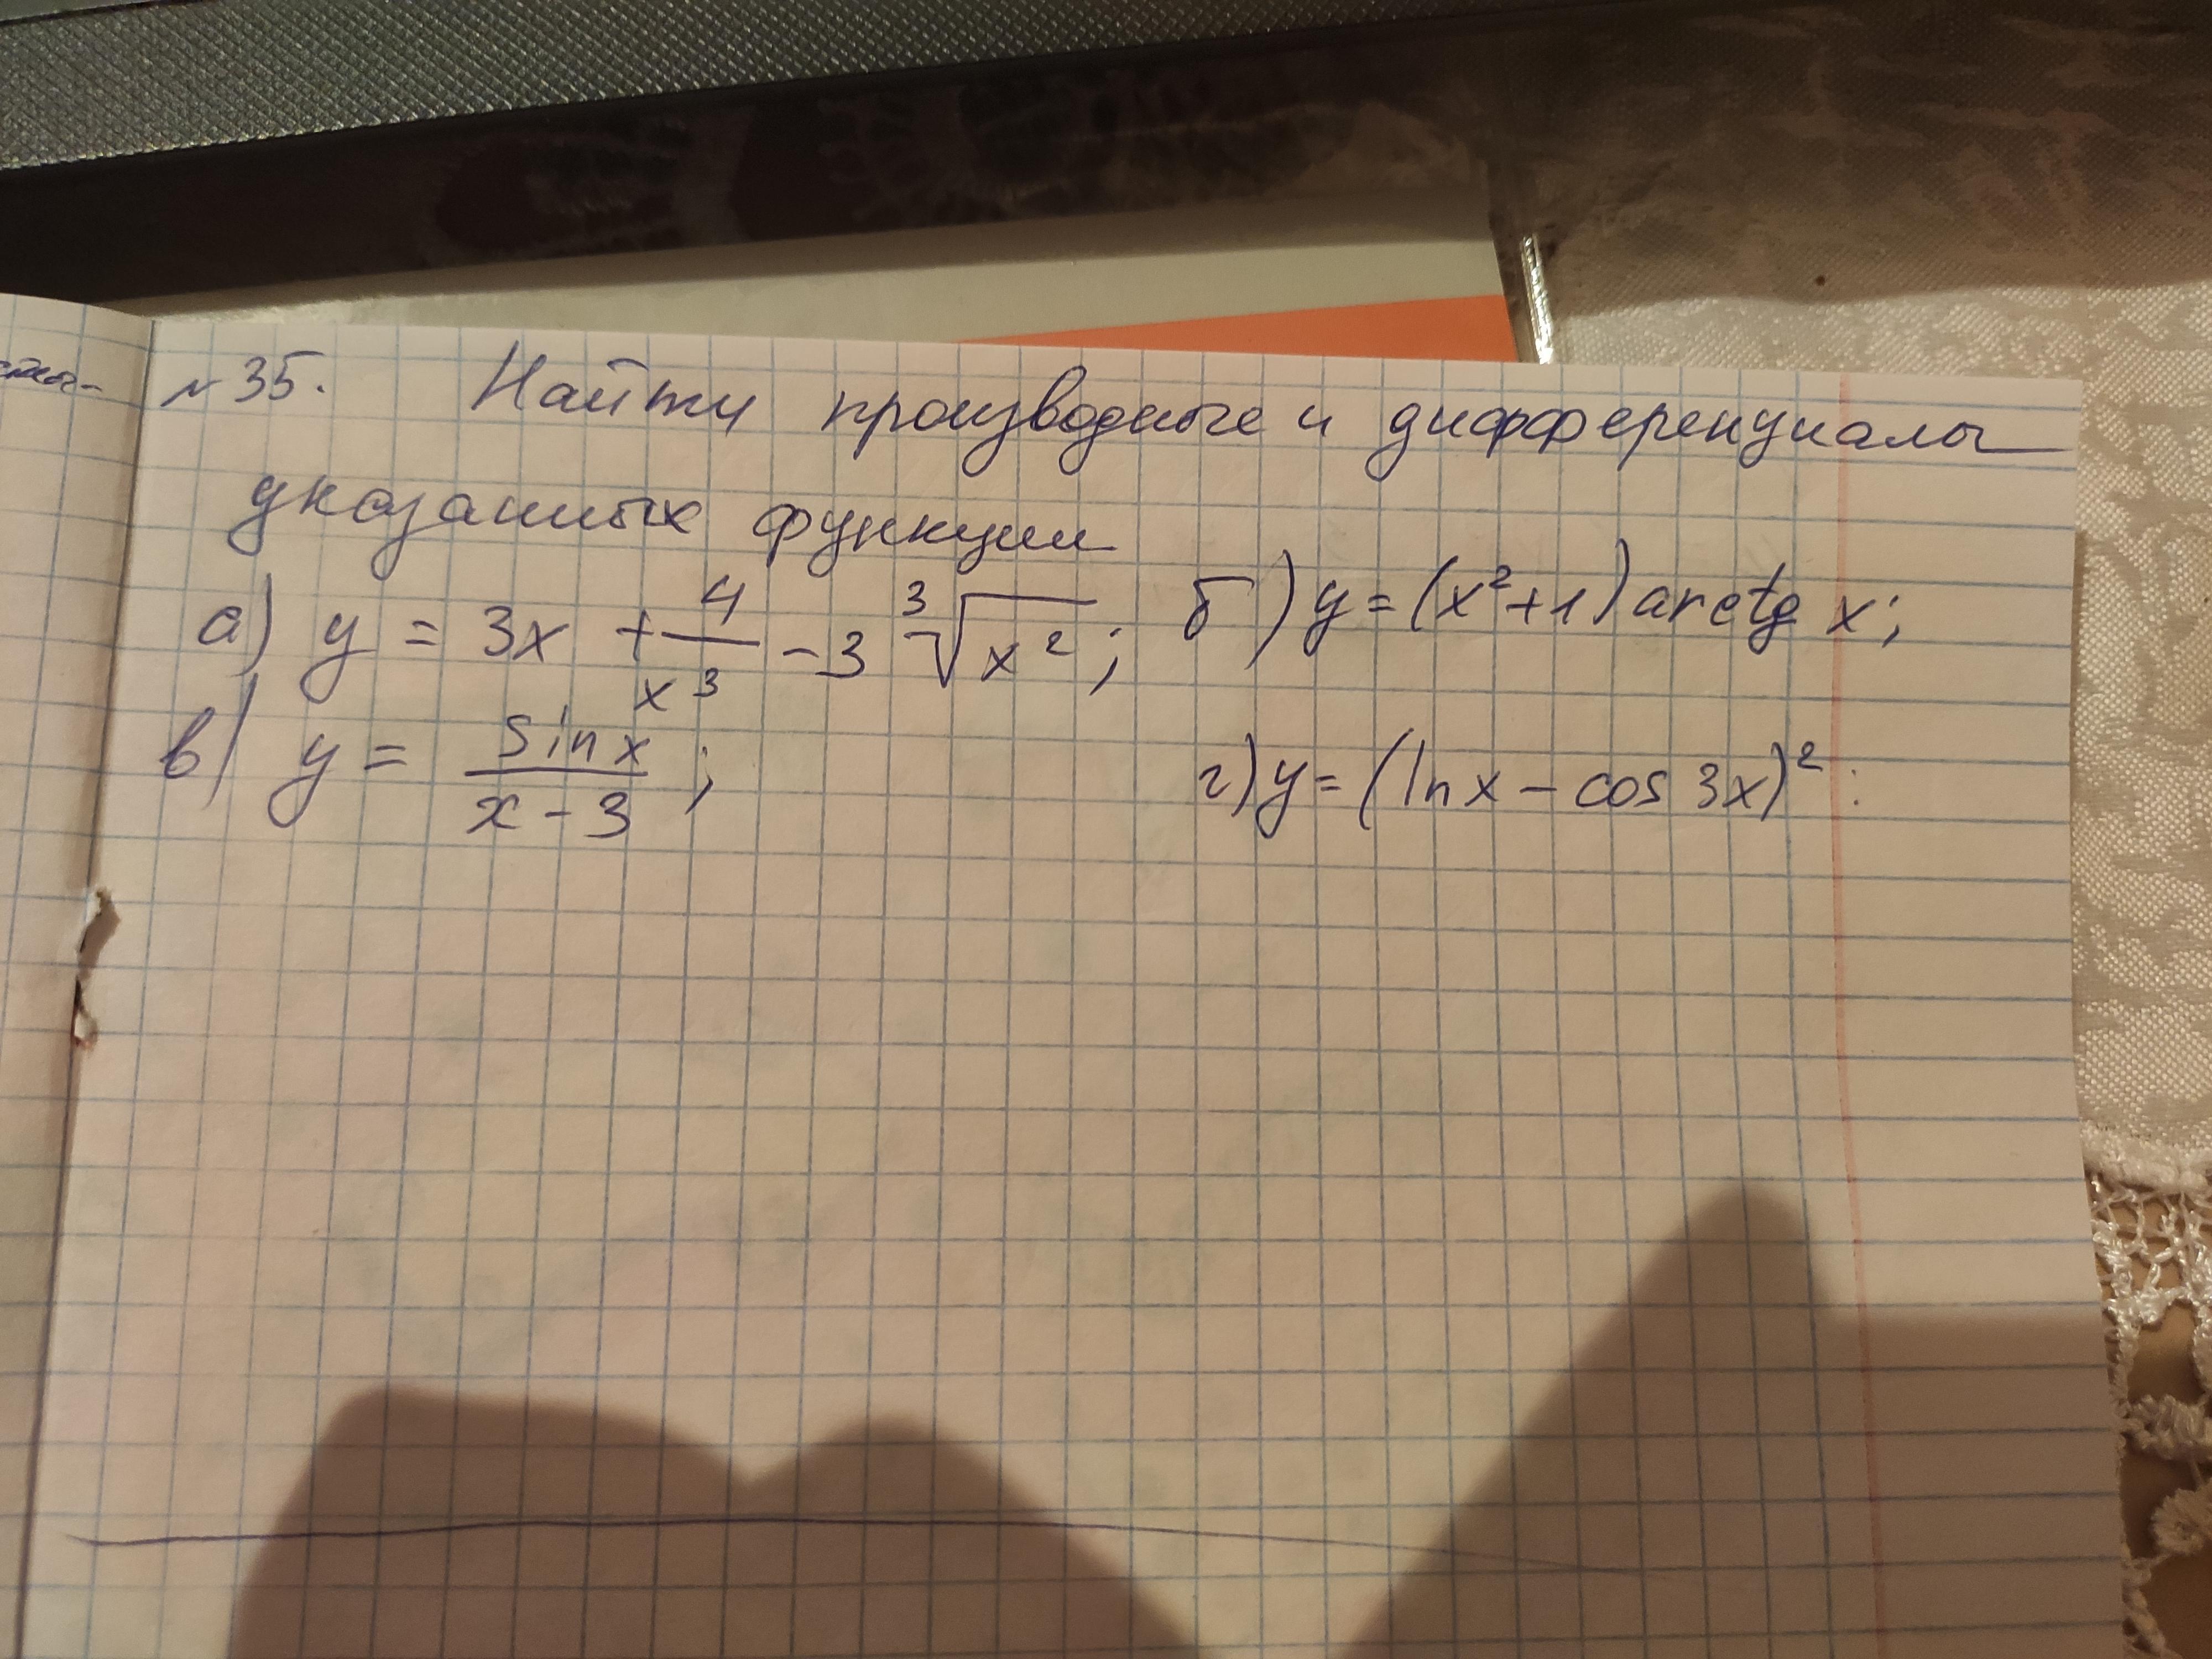 №35. Найти производные и дифференциалы
указанных функции
а) y = 3x + 4/x³ - 3 ³√x²; б) y = (x²+1) arctg x;
в) y = sin x / x - 3; г) y = (ln x - cos 3x)² :